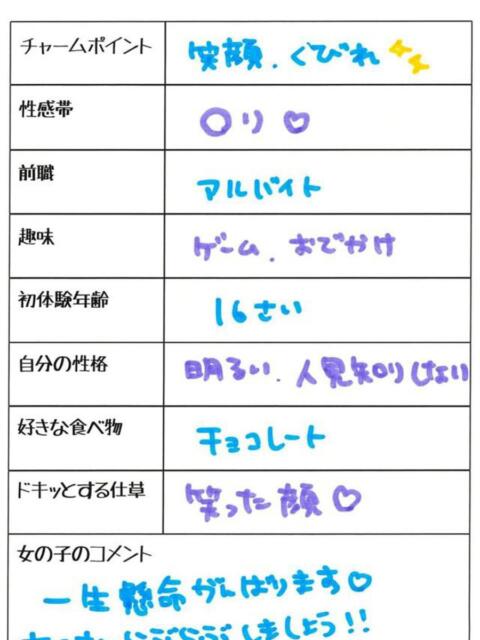 チャームポイント 笑顔、くびれ
性感帯 〇り♡
前職 アルバイト
趣味 ゲーム、おでかけ
初体験年齢 16さい
自分の性格 明るい、人見知りしない
好きな食べ物 チョコレート
ドキッとする仕草 笑った顔♡
女の子のコメント
一生懸命がんばります♡
しましょう!!